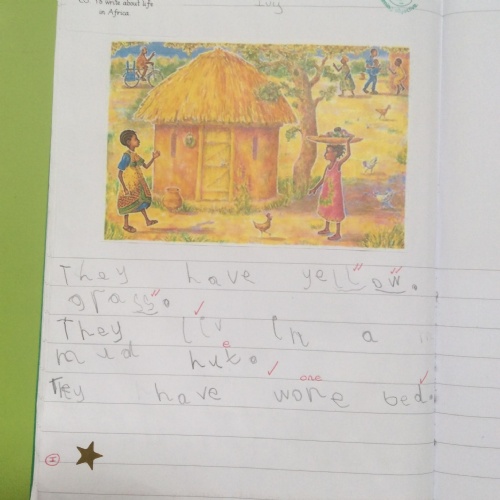 LO: To write about life
in Africa
They have yellow.
grass.
They liv in a
e
mud hut.
one
They have wone bed.
I